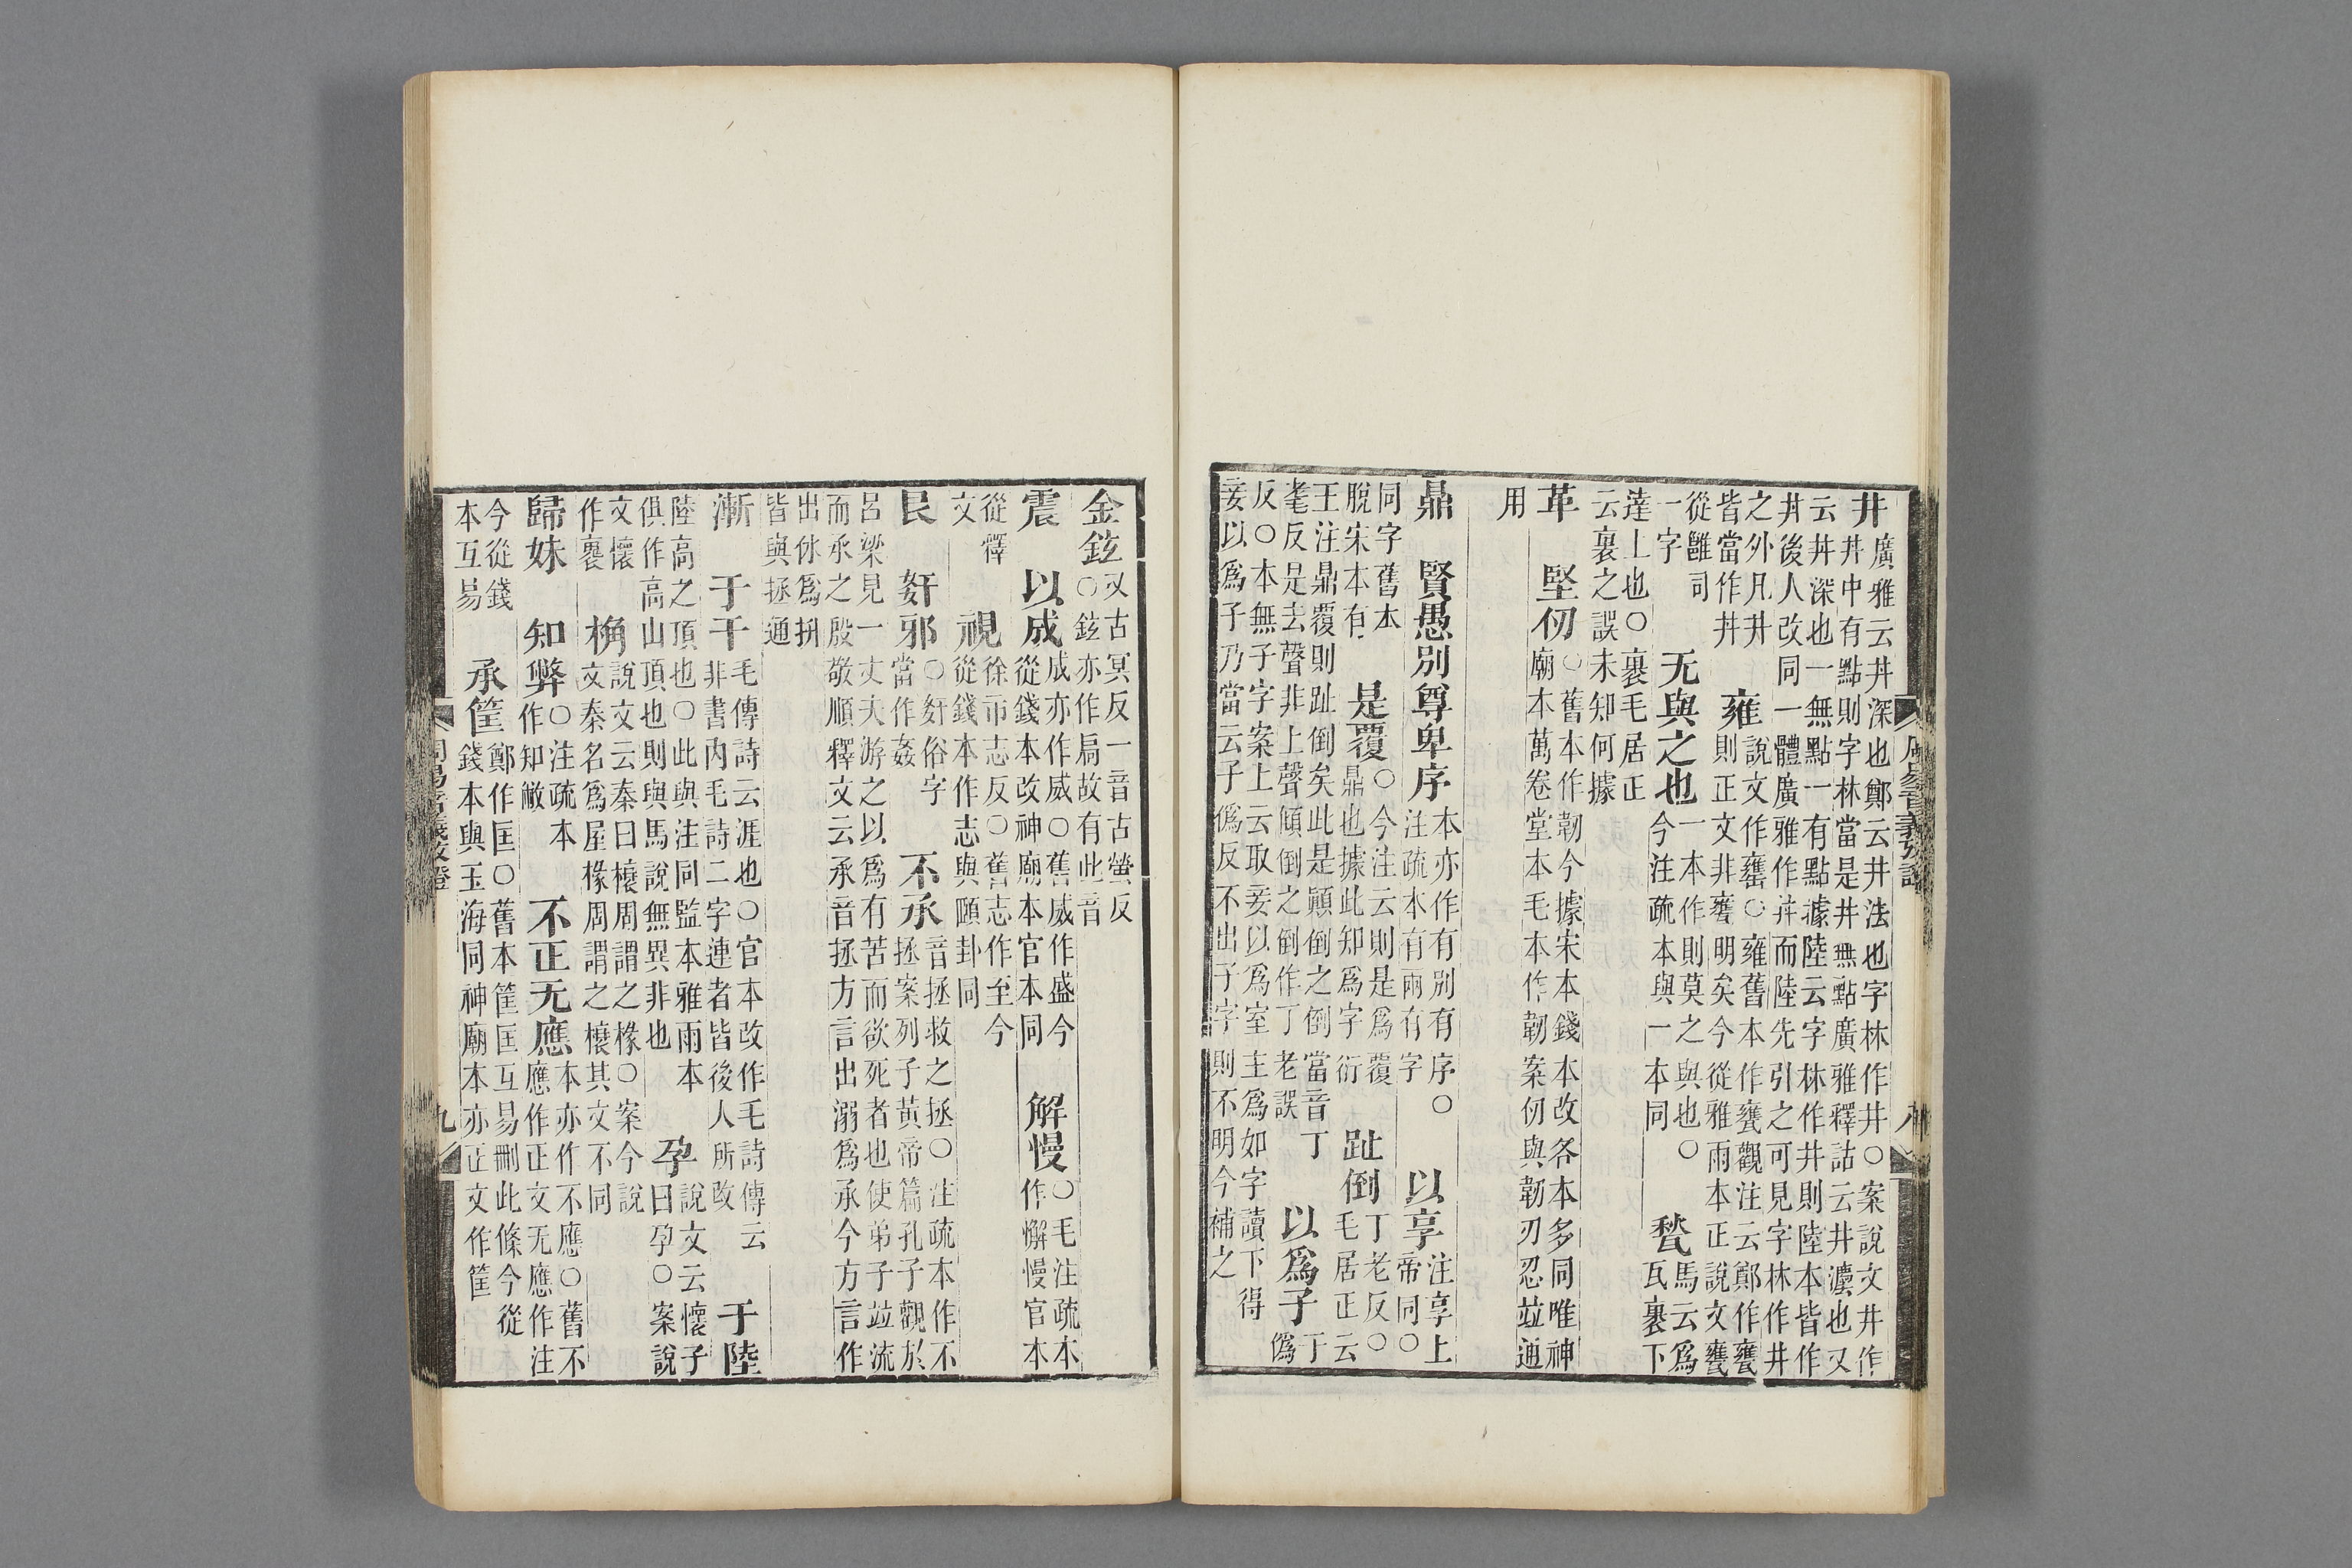 井 廣雅云丼深也鄭云井法也字林作井○案說文丼作
丼中有點則字林當是井無點廣雅釋詁云井瀍也又
云丼深也一無點一有點據陸云字林作井則陸本皆作
丼後人改同一體廣雅作丼而陸先引之可見字林作井
之外凡井
皆當作丼
雍 說文作罋○雍舊本作甕觀注云鄭作甕
則正文非甕明矣今從雅雨本正說文罋
從雔司
一字
无與之也 一本作則莫之與也○
今注疏本與一本同
甃 馬云爲
瓦裏下
達上也○裏毛居正
云裏之誤未知何據
革 堅仞 ○舊本作韌今據宋本錢本改各本多同唯神
廟本萬卷堂本毛本作韌案仞與韌刃忍竝通
用
鼎 賢愚別尊卑序 本亦作有別有序○
注疏本有兩有字
以享 注享上
帝同○
同字舊本
脫宋本有
是覆 ○今注云則是爲覆
鼎也據此知爲字衍
趾倒 丁老反○
毛居正云
王注鼎覆則趾倒矣此是顚倒之倒當音丁
老反是去聲非上聲傾倒之倒作丁老誤
以爲子 于
僞
反○本無子字案上云取妾以爲室主爲如字讀下得
妾以爲子乃當云子僞反不出子字則不明今補之
周易音義攷證
八
金鉉 又古冥反一音古螢反
○鉉亦作扃故有此音
震 以成 成亦作威○舊威作盛今
從錢本改神廟本官本同
解慢 ○毛注疏本
作懈慢官本
從釋
文
視 徐市志反○舊志作至今
從錢本作志與頤卦同
艮 姧邪 ○姧俗字
當作姦
不承 音拯救之拯○注疏本作不
拯案列子黃帝篇孔子觀於
呂梁見一丈夫游之以爲有苦而欲死者也使弟子竝流
而承之殷敬順釋文云承音拯方言出溺爲承今方言作
出休爲拼
皆與拯通
漸 于干 毛傳詩云涯也○官本改作毛詩傳云
非書內毛詩二字連者皆後人所改
于陸
陸高之頂也○此與注同監本雅雨本
俱作高山頂也則與馬說無異非也
孕 說文云懷子
曰孕○案說
文懷
作褱
桷 說文云秦曰榱周謂之椽○案今說
文秦名爲屋椽周謂之榱其文不同
歸妹 知弊 ○注疏本
作知敝
不正无應 本亦作不應○舊不
應作正文无應作注
今從錢
本互易
承筐 鄭作匡○舊本筐匡互易刪此條今從
錢本與玉海同神廟本亦正文作筐
九